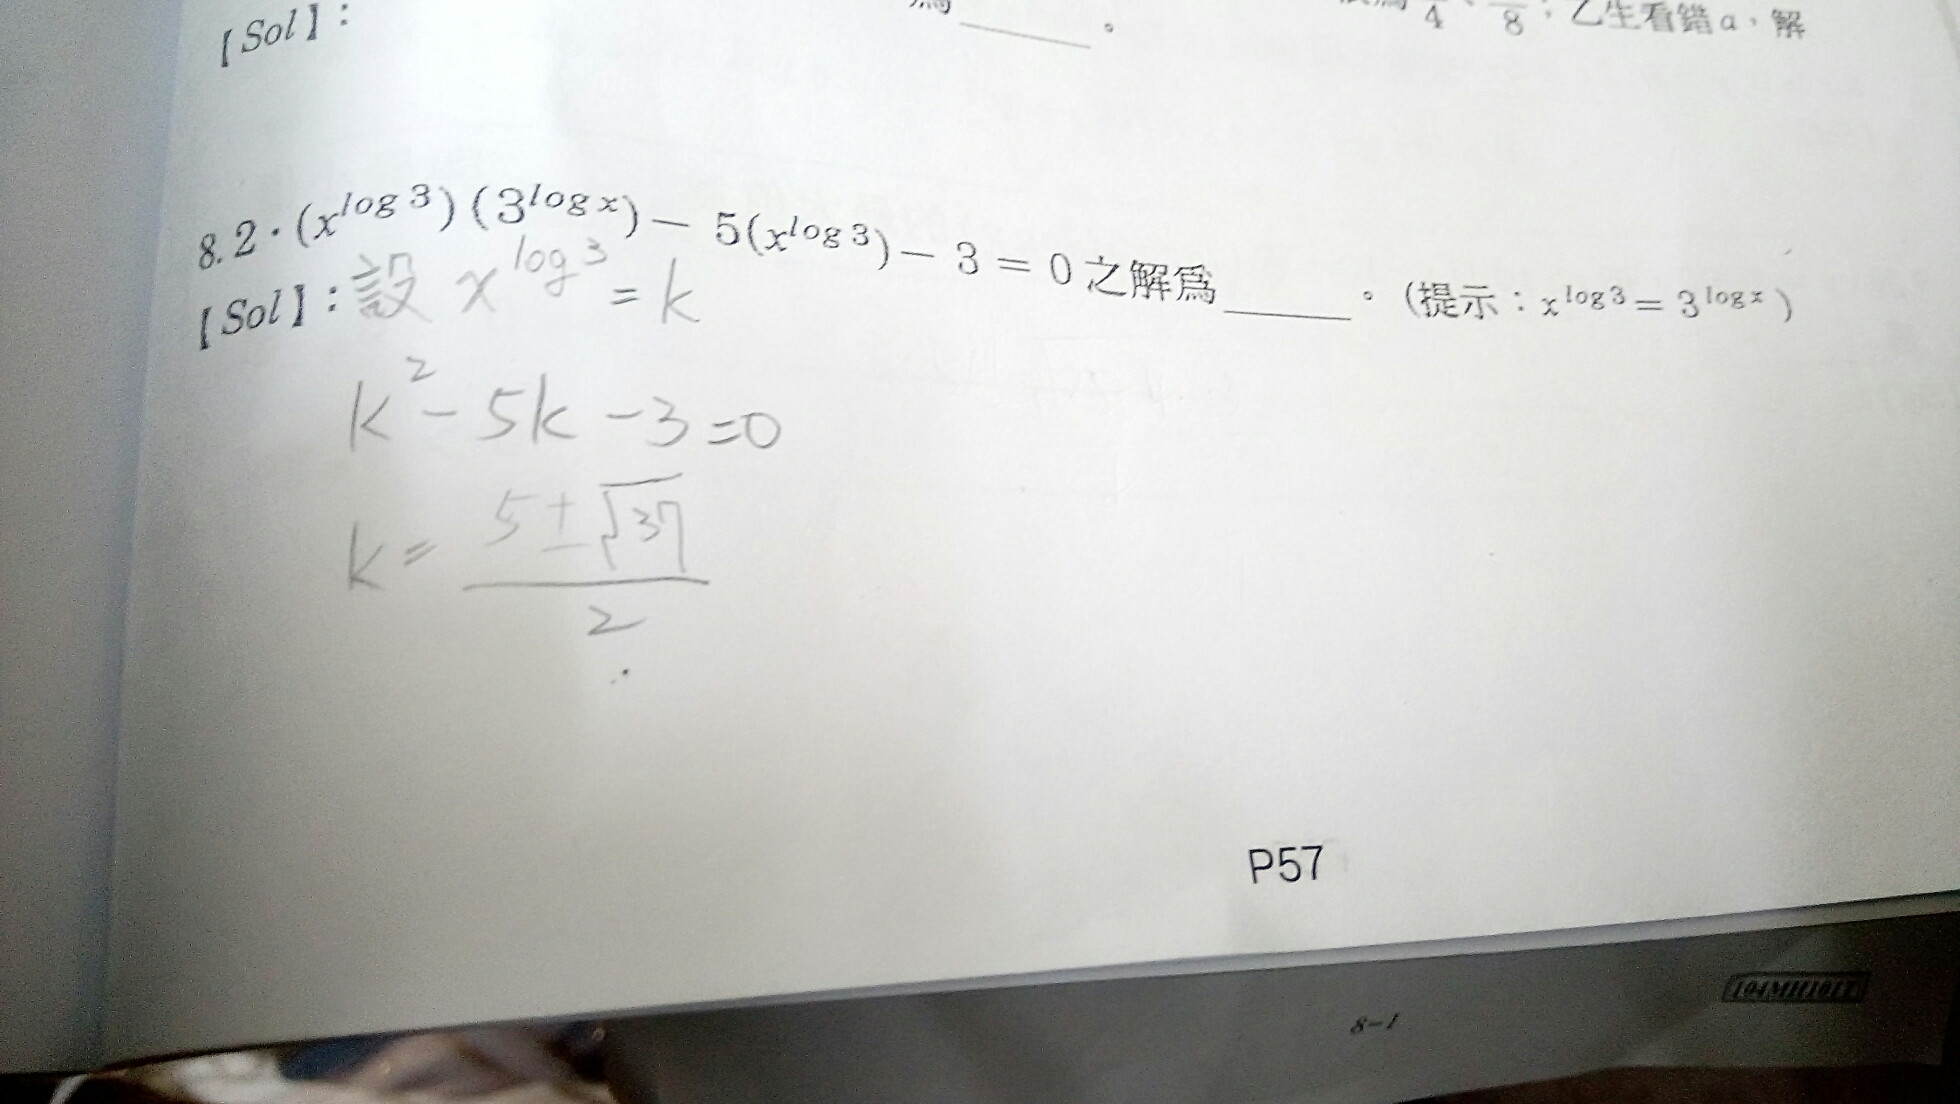 【Sol】：
。
4 8 ；乙生看錯 a，解
8. 2·(x^{log 3})(3^{log x}) − 5(x^{log 3}) − 3 = 0 之解為______。(提示：x^{log 3} = 3^{log x})
【Sol】：設 x^{log 3} = k
k² − 5k − 3 = 0
k = \frac{5 ± \sqrt{37}}{2}
P57
8-1
104MH101T